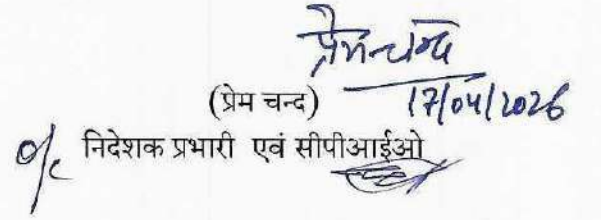 प्रेमचन्द
(प्रेम चन्द) 17/04/2026
o/c निदेशक प्रभारी एवं सीपीआईओ